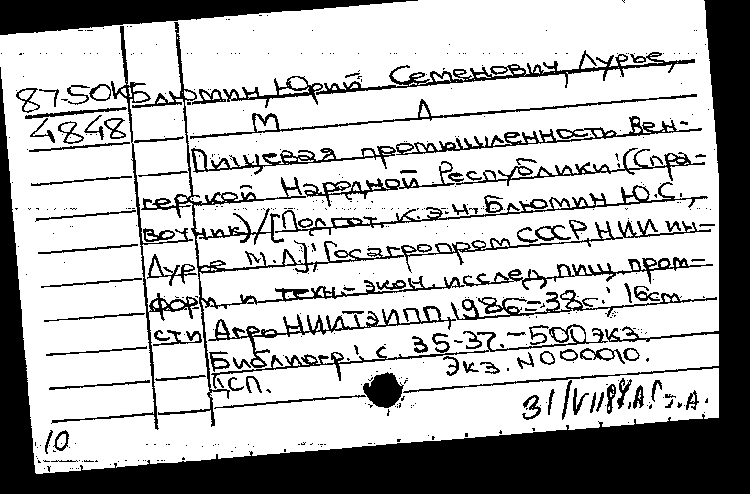 87-50К Блюмин, Юрий Семенович, Лурье,
4848 М Л
Пищевая промышленность Вен-
герской Народной Республики: (Спра-
вочник) / [Подгот. к.э.н. Блюмин Ю.С.,
Лурье М.Л.]; Госагропром СССР, НИИ ин-
форм. и техн.-экон. исслед. пищ. пром-
сти АгроНИИТЭИПП, 1986-38с.; 16см
Библиогр.: с. 35-37. - 500 экз.
ДСП. Экз. N000010.
10